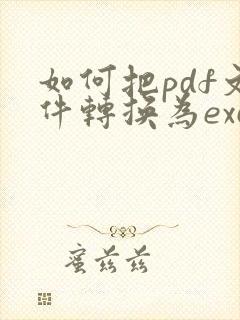 如何把pdf文
件轉換為exc
蜜茲茲